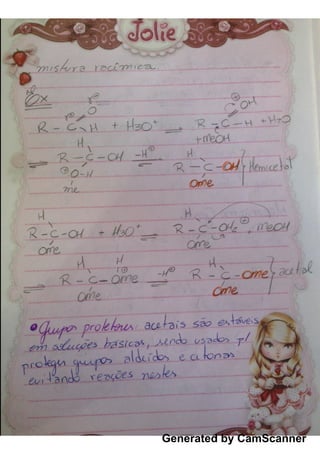 Jolie
mistura racêmica.
Ex
R - C H + H3O+ ⇌ R - C - H + H2O
+ MeOH
⇌ R - C - OH -H⊕ ⇌ R - C - OH } Hemicetal
O-H OMe
me
R - C - OH + H3O+ ⇌ R - C - OH2 + MeOH
OMe OMe
⇌ R - C - OMe -H⊕ ⇌ R - C - OMe } acetal
OMe OMe
• Grupos protetores: acetais são estáveis
em soluções básicas, sendo usados p/
proteger grupos aldeídos e cetonas
evitando reações nestes
Generated by CamScanner